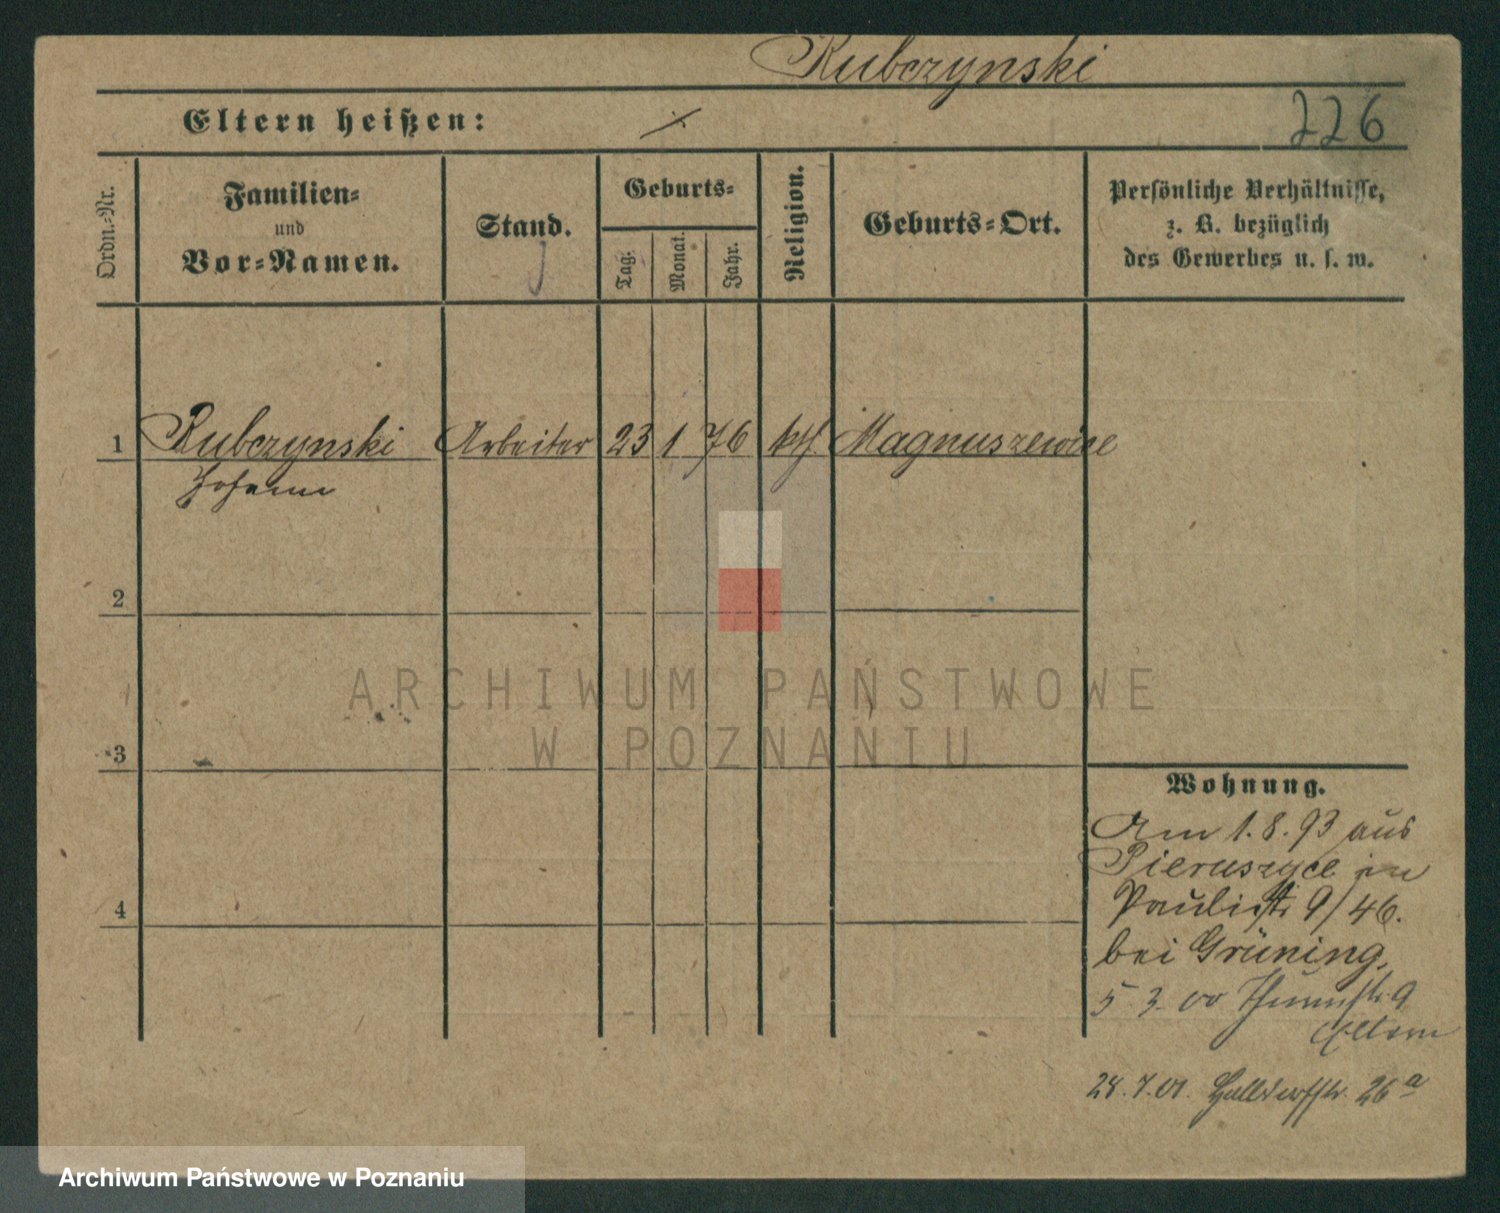 Rubczynski
Eltern heißen:
226
Ordn.-Nr.
Familien-
und
Vor-Namen.
Stand.
Geburts-
Tag.
Monat.
Jahr.
Religion.
Geburts-Ort.
Persönliche Verhältnisse,
z. B. bezüglich
des Gewerbes u. s. w.
1 Rubczynski Arbeiter 23 1 76 kth. Magnuszewice
Johann
2
ARCHIWUM PAŃSTWOWE
W POZNANIU
3
4
Wohnung.
Am 1.8.93 aus
Pieruszyce in
Paulistr 9/46.
bei Grüning,
5 3 00 9
Eltern
28.7.01. 26a
Archiwum Państwowe w Poznaniu